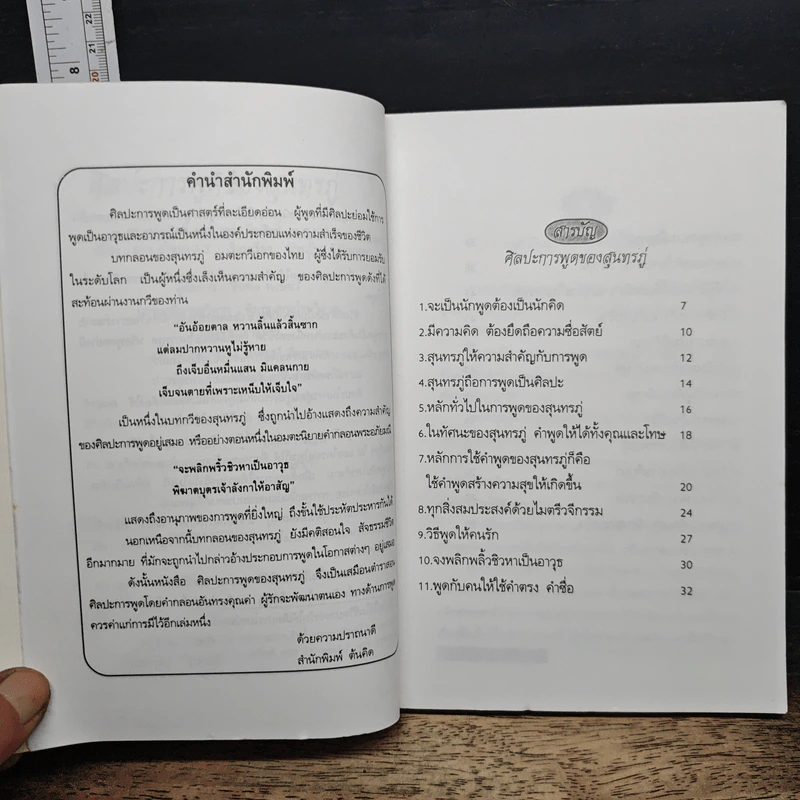 8
20
21
22
คำนำสำนักพิมพ์
ศิลปะการพูดเป็นศาสตร์ที่ละเอียดอ่อน ผู้พูดที่มีศิลปะย่อมใช้การ
พูดเป็นอาวุธและอาภรณ์เป็นหนึ่งในองค์ประกอบแห่งความสำเร็จของชีวิต
บทกลอนของสุนทรภู่ อมตะกวีเอกของไทย ผู้ซึ่งได้รับการยอมรับ
ในระดับโลก เป็นผู้หนึ่งซึ่งเล็งเห็นความสำคัญ ของศิลปะการพูดดังที่ได้
สะท้อนผ่านงานกวีของท่าน
"อันอ้อยตาล หวานลิ้นแล้วสิ้นซาก
แต่ลมปากหวานหูไม่รู้หาย
ถึงเจ็บอื่นหมื่นแสน มิแคลนกาย
เจ็บจนตายที่เพราะเหน็บให้เจ็บใจ"
เป็นหนึ่งในบทกวีของสุนทรภู่ ซึ่งถูกนำไปอ้างแสดงถึงความสำคัญ
ของศิลปะการพูดอยู่เสมอ หรืออย่างตอนหนึ่งในอมตะนิยายคำกลอนพระอภัยมณี
"จะพลิกพริ้วชิวหาเป็นอาวุธ
พิฆาตบุตรเจ้าลังกาให้อาสัญ"
แสดงถึงอานุภาพของการพูดที่ยิ่งใหญ่ ถึงขั้นใช้ประหัตประหารกันได้
นอกเหนือจากนี้บทกลอนของสุนทรภู่ ยังมีคติสอนใจ สัจธรรมชีวิต
อีกมากมาย ที่มักจะถูกนำไปกล่าวอ้างประกอบการพูดในโอกาสต่างๆ อยู่เสมอ
ดังนั้นหนังสือ ศิลปะการพูดของสุนทรภู่ จึงเป็นเสมือนตำราสอน
ศิลปะการพูดโดยคำกลอนอันทรงคุณค่า ผู้รักจะพัฒนาตนเอง ทางด้านการพูด
ควรค่าแก่การมีไว้อีกเล่มหนึ่ง
ด้วยความปราถนาดี
สำนักพิมพ์ ต้นคิด
สารบัญ
ศิลปะการพูดของสุนทรภู่
1.จะเป็นนักพูดต้องเป็นนักคิด 7
2.มีความคิด ต้องยึดถือความซื่อสัตย์ 10
3.สุนทรภู่ให้ความสำคัญกับการพูด 12
4.สุนทรภู่ถือการพูดเป็นศิลปะ 14
5.หลักทั่วไปในการพูดของสุนทรภู่ 16
6.ในทัศนะของสุนทรภู่ คำพูดให้ได้ทั้งคุณและโทษ 18
7.หลักการใช้คำพูดของสุนทรภู่ก็คือ
ใช้คำพูดสร้างความสุขให้เกิดขึ้น 20
8.ทุกสิ่งสมประสงค์ด้วยไมตรีวจีกรรม 24
9.วิธีพูดให้คนรัก 27
10.จงพลิกพลิ้วชิวหาเป็นอาวุธ 30
11.พูดกับคนให้ใช้คำตรง คำซื่อ 32